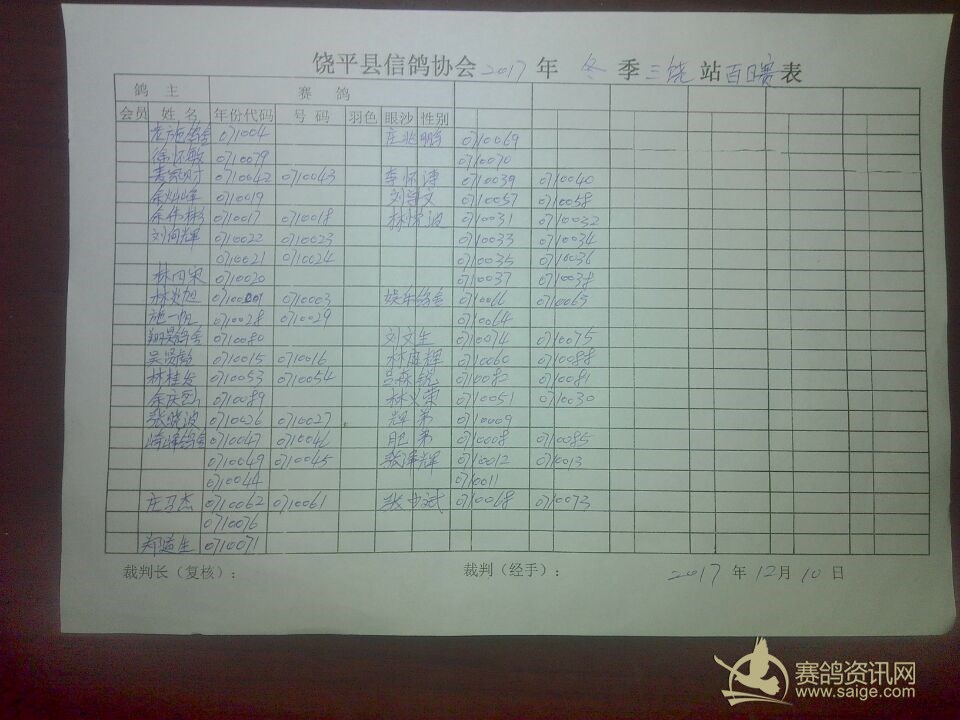 饶平县信鸽协会2017年 冬 季三饶站百日赛表
鸽 主 赛 鸽
会员 姓 名 年份代码 号 码 羽色 眼沙 性别
鸽舍 071004 庄兆鹏 0710069
徐怀敏 0710079 0710070
0710042 0710043 李怀涛 0710039 0710040
余灿峰 0710019 刘 文 0710057 0710058
余伟彬 0710017 0710018 林 波 0710031 0710032
刘向辉 0710022 0710023 0710033 0710034
0710021 0710024 0710035 0710036
林 0710020 0710037 0710038
林 旭 0710003 娱乐鸽舍 0710066 0710065
施一帆 0710028 0710029 0710064
翔昊鸽舍 0710080 刘文生 0710074 0710075
吴 0710015 0710016 林 辉 0710060 0710088
林桂发 0710053 0710054 吕 锐 0710082 0710081
余庆 0710089 林义荣 0710051 0710030
张晓波 0710026 0710027 辉弟 0710009
峰鸽舍 0710047 0710046 肥弟 0710008 0710085
0710049 0710045 张泽辉 0710012 0710013
0710044 0710011
庄 杰 0710062 0710061 张 斌 0710068 0710073
0710076
郑益生 0710071
裁判长（复核）： 裁判（经手）： 2017 年 12月 10 日
赛鸽资讯网
www.saige.com